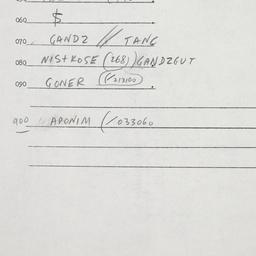 060 $
070 GANDZ // TANG
080 NIS+KOSE (268) GANDZGUT
090 GONER (/313100)
900 APONIM (/033060